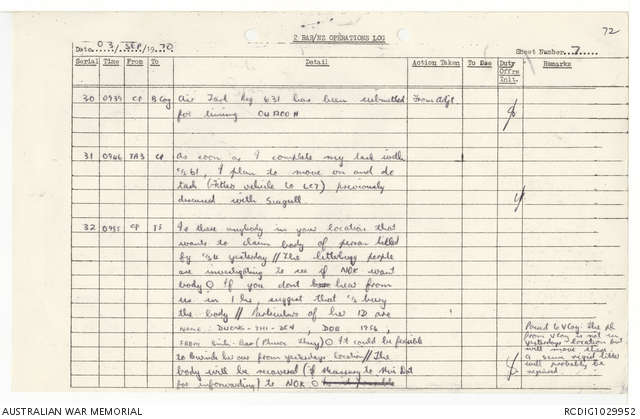 72
2 RAR/NZ OPERATIONS LOG
Date 03 / SEP /19 70
Sheet Number 7
Serial Time From To Detail Action Taken To Due Duty Offrs Init. Remarks
30 0939 CP B Coy Air Task Req 631 has been submitted From Adjt
for timing 041200H
31 0946 TA3 CP As soon as I complete my task with
I plan to move on and do
task ( vehicle to LCT) previously
discussed with Seagull
32 0955 CP
Is there anybody in your location that
wants to claim body of person killed
by yesterday // The people
are investigating to see if NOK want
body O If you dont hear from
us in 1 hr, suggest that bury
the body // Particulars of her ID are
NAME: DUONG-THI- , DOB 1956,
FROM O It could be possible
to from yesterdays location // The
body will be recovered (if necessary to this loc
for ) to NOK O
Point 6 V Coy. The pl
from V Coy is not in
yesterdays location but
will move there
a litter
will probably be
required
AUSTRALIAN WAR MEMORIAL
RCDIG1029952